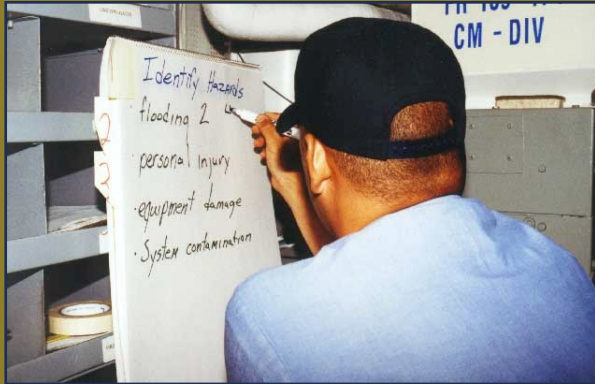 CM - DIV
Identify Hazards
· flooding 2
· personal injury
· equipment damage
· System contamination
2
3